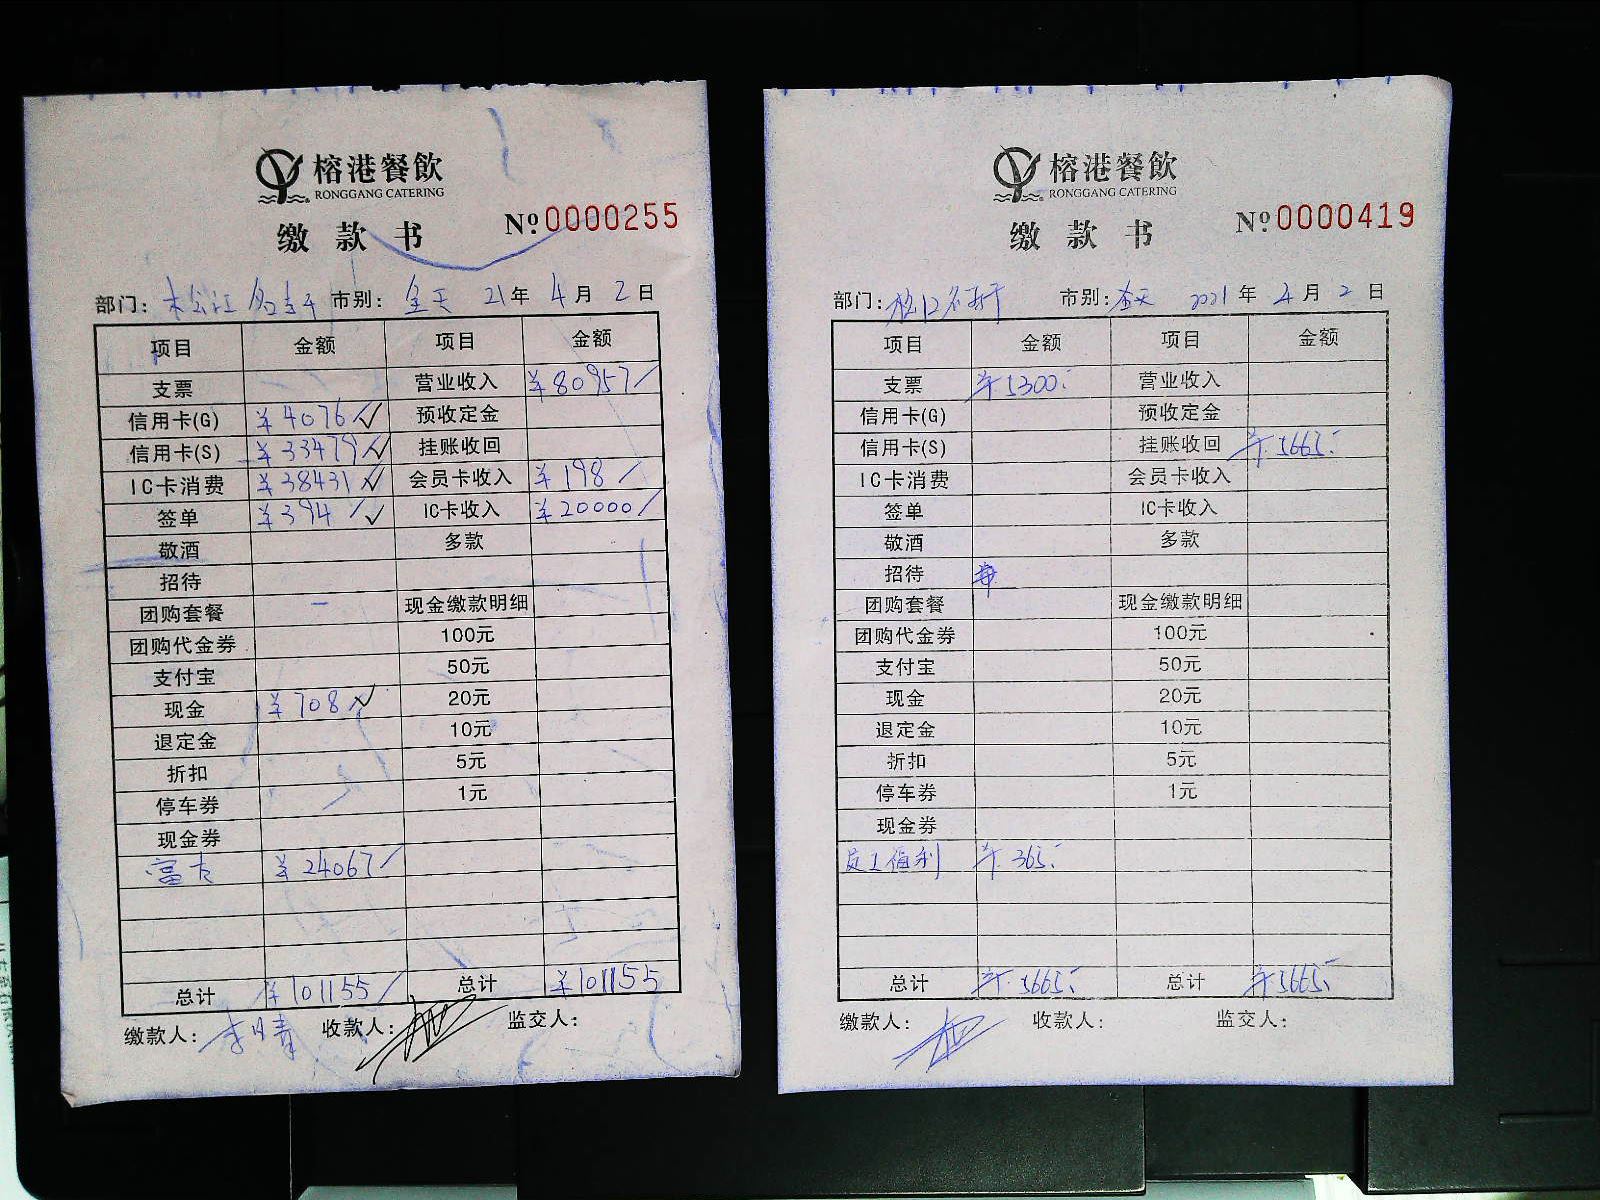 榕港餐飲
RONGGANG CATERING
缴款书 №0000255
部门：松江名轩 市别：全天 21年 4月 2日
项目 金额 项目 金额
支票 营业收入 ¥80957
信用卡(G) ¥4076 预收定金
信用卡(S) ¥33479 挂账收回
IC卡消费 ¥38431 会员卡收入 ¥198
签单 ¥394 IC卡收入 ¥20000
敬酒 多款
招待
团购套餐 — 现金缴款明细
团购代金券 100元
支付宝 50元
现金 ¥708 20元
退定金 10元
折扣 5元
停车券 1元
现金券
富卡 ¥24067
总计 ¥101155 总计 ¥101155
缴款人：李晴 收款人： 监交人：
榕港餐飲
RONGGANG CATERING
缴款书 №0000419
部门：松江名轩 市别：全天 2021年 4月 2日
项目 金额 项目 金额
支票 ¥5300 营业收入
信用卡(G) 预收定金
信用卡(S) 挂账收回 ¥5665
IC卡消费 会员卡收入
签单 IC卡收入
敬酒 多款
招待
团购套餐 现金缴款明细
团购代金券 100元
支付宝 50元
现金 20元
退定金 10元
折扣 5元
停车券 1元
现金券
员工福利 ¥365
总计 ¥5665 总计 ¥5665
缴款人： 收款人： 监交人：